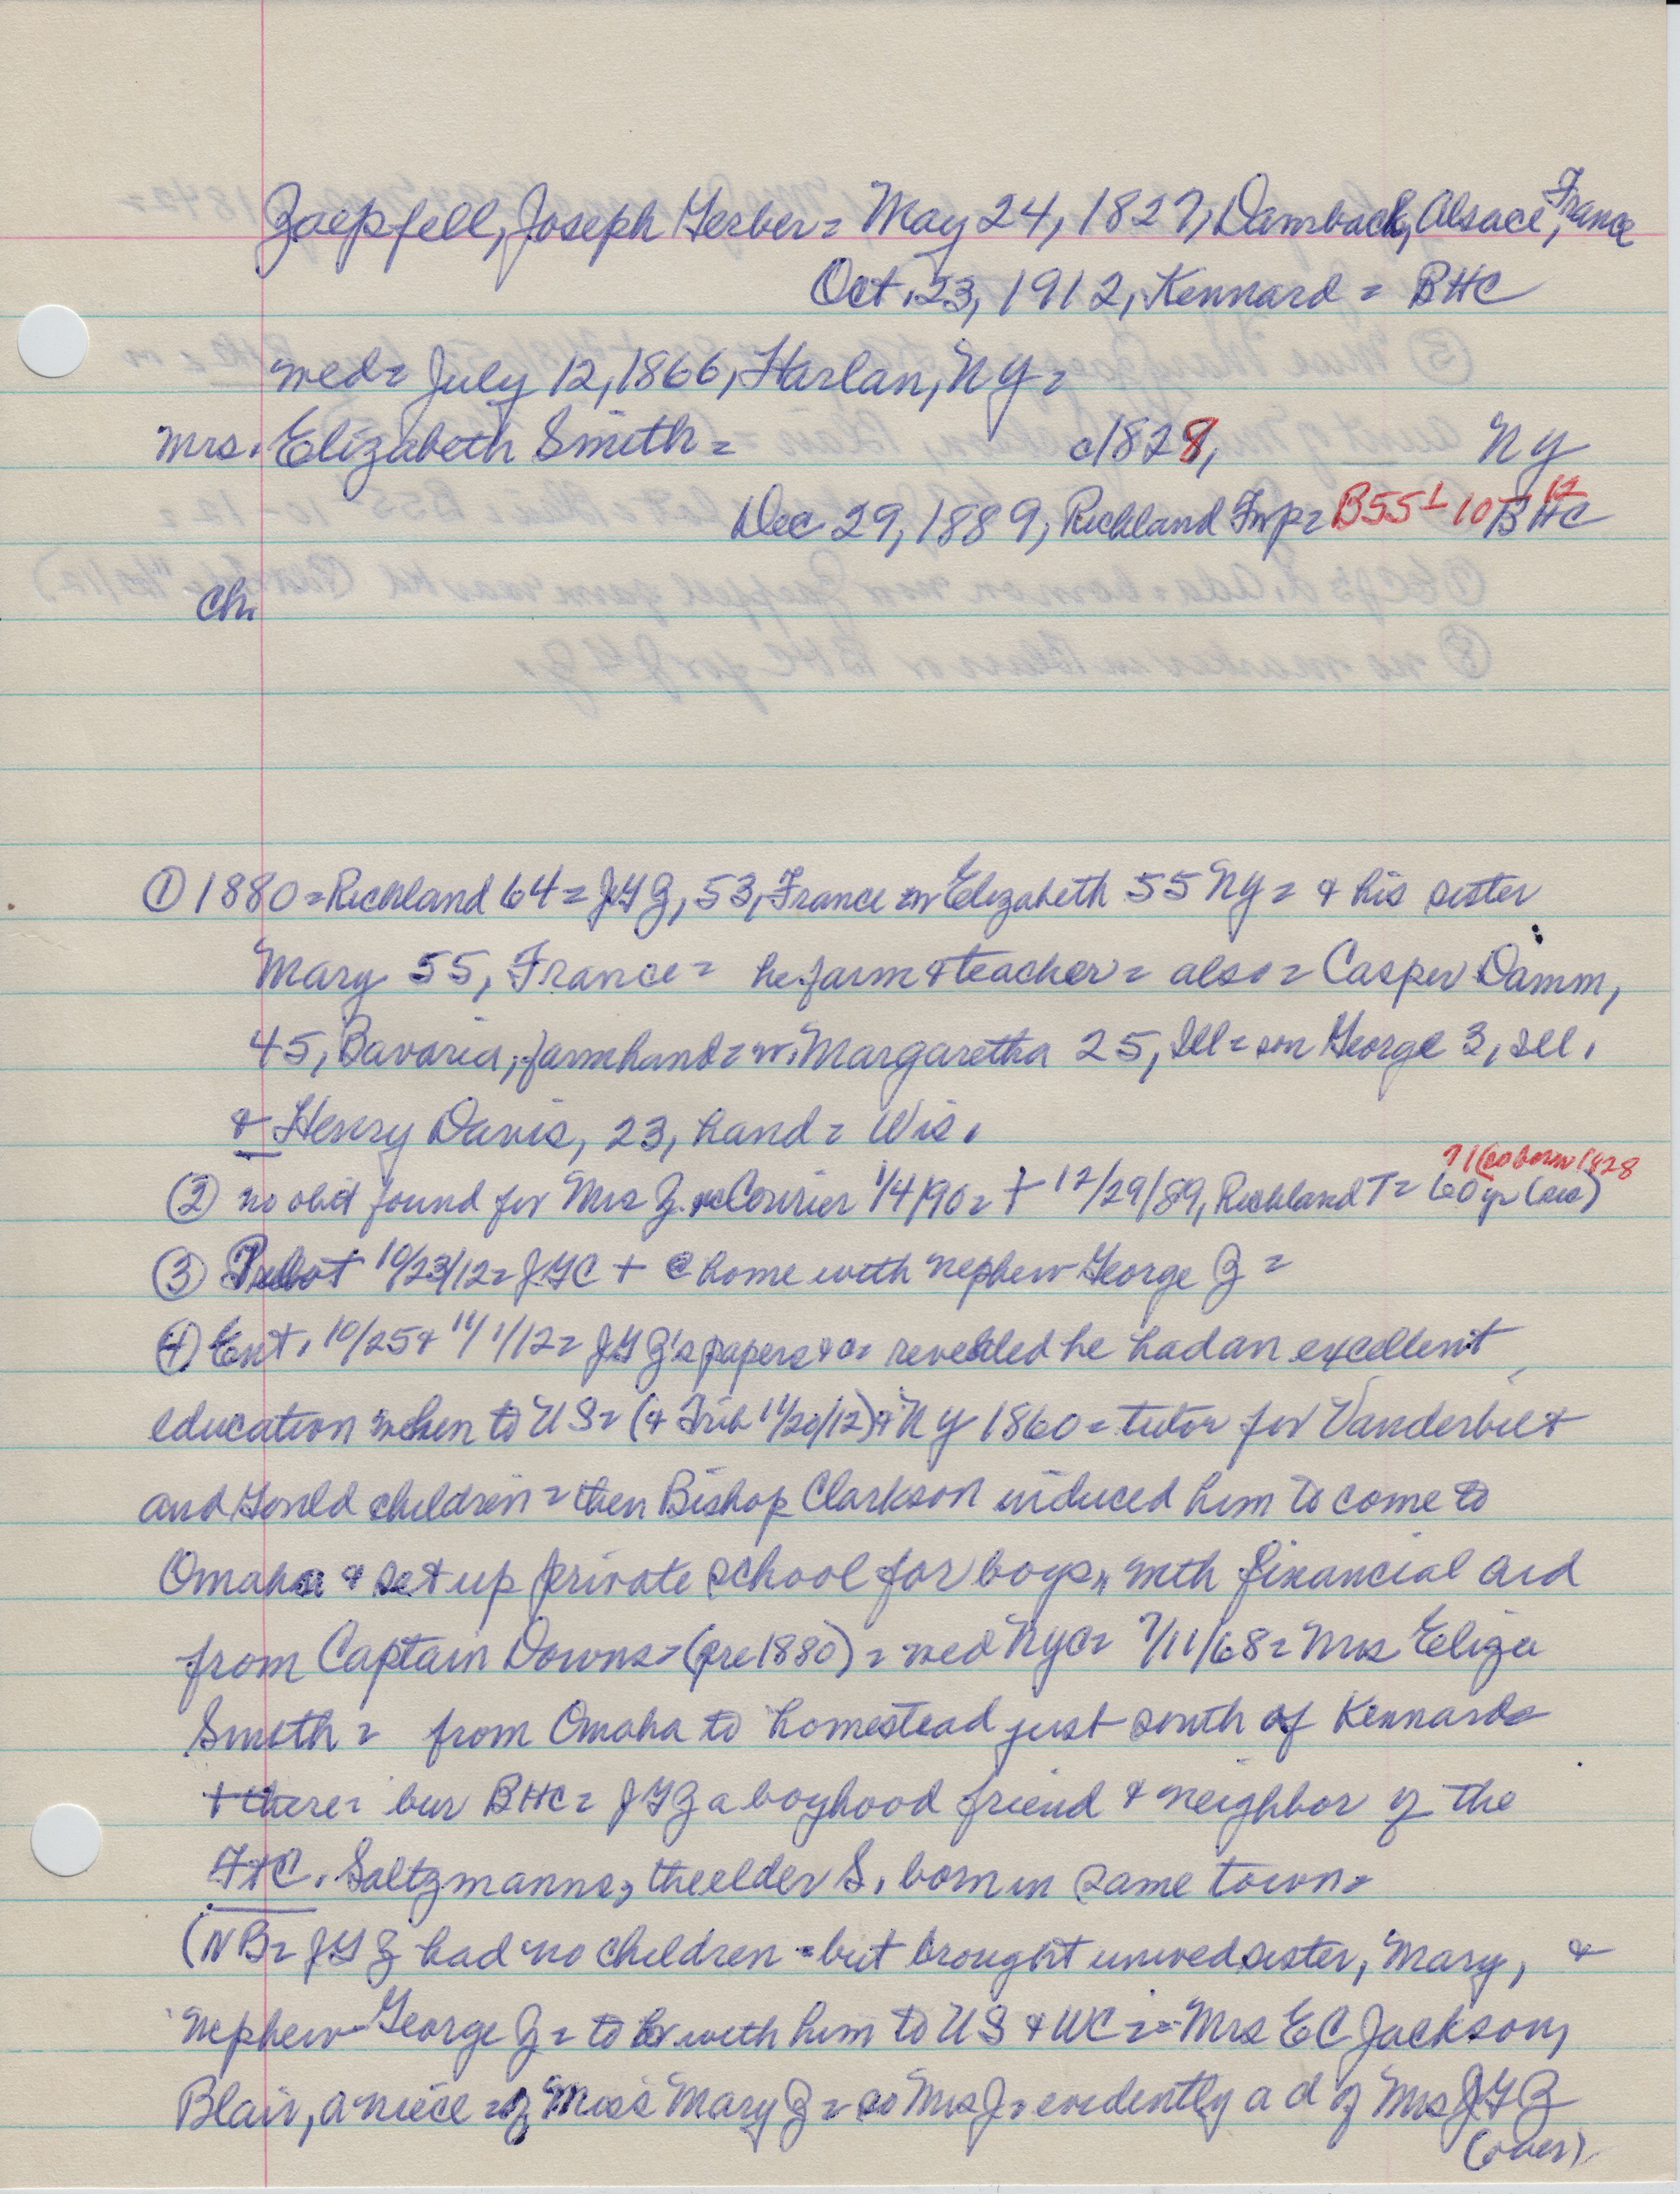 Zaepffell, Joseph Gerber = May 24, 1827, Dambach, Alsace, France
Oct. 23, 1912, Kennard = BHC
med = July 12, 1866, Harlan, NY =
Mrs. Elizabeth Smith = c1828, NY
Dec 29, 1889, Richland Twp = B55 L 10 12 BHC
ch.
① 1880 = Richland 64 = JGZ, 53, France w Elizabeth 55 NY = & his sister
Mary 55, France = he farm & teacher = also = Casper Damm,
45, Bavaria, farmhand = w. Margaretha 25, Ill = son George 3, Ill.
& Henry Davis, 23, hand = Wis.
② no obit found for Mrs Z. Courier 1/4/90 = † 12/29/89, Richland T = 60 yr (sic)
71 (so born 1828
③ 10/23/12 = JGC † @ home with nephew George Z =
④ Ent. 10/25 & 11/1/12 = JGZ's papers & c = revealed he had an excellent
education when to US = (& Trib 11/20/12) & NY 1860 = tutor for Vanderbilt
and Gould children = then Bishop Clarkson induced him to come to
Omaha & set up private school for boys, with financial aid
from Captain Downs = (pre 1880) = med NYC = 7/11/68 = Mrs Eliza
Smith = from Omaha to homestead just south of Kennard
† there = bur BHC = JGZ a boyhood friend & neighbor of the
Saltzmanns, the elder S. born in same town =
(NB = JGZ had no children = but brought unwed sister, Mary, &
nephew George Z = to with him to US & WC = = Mrs EC Jackson,
Blair, a niece of Miss Mary Z = so Mrs J = evidently a d of Mrs JGZ
(over)